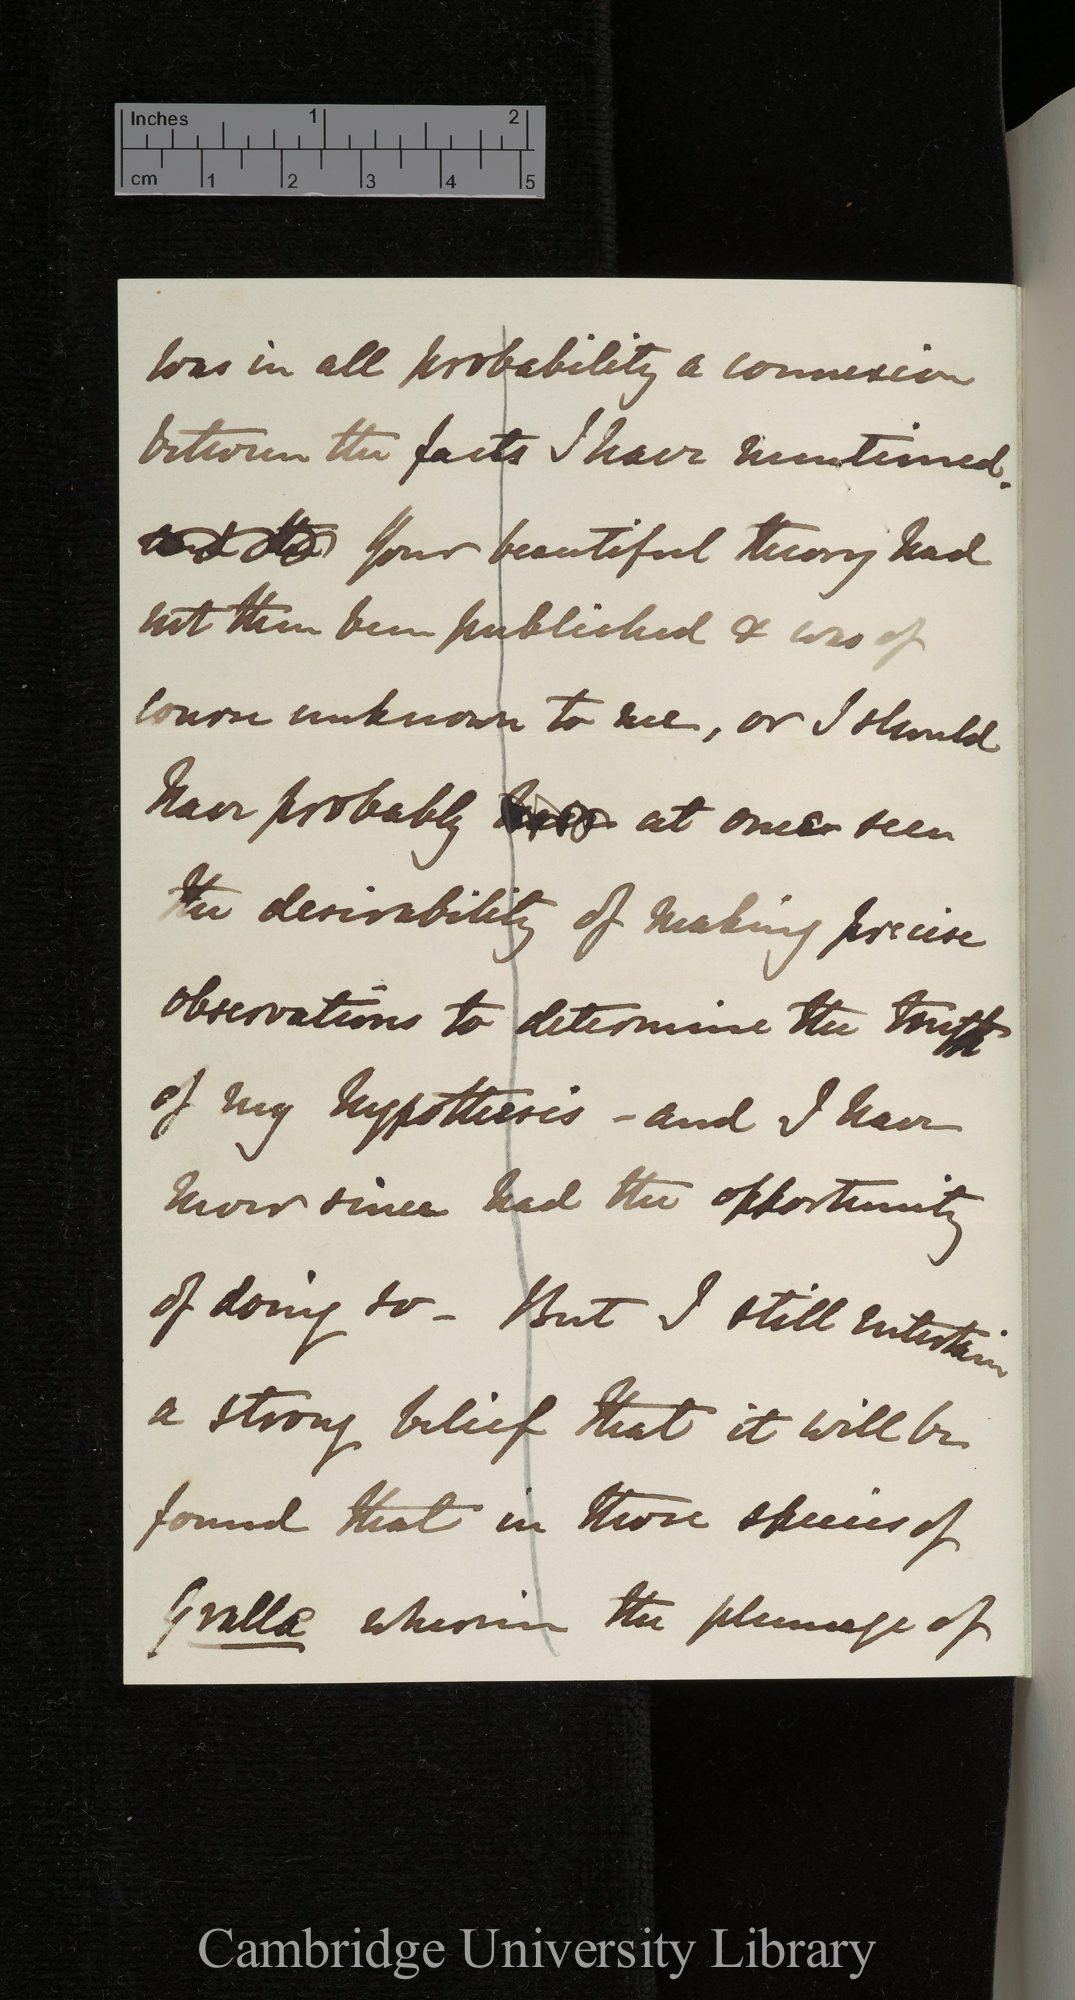 Inches 1 2
cm 1 2 3 4 5
was in all probability a connexion
between the facts I have mentioned.
and the Your beautiful theory had
not then been published & was of
course unknown to me, or I should
have probably at once seen
the desirability of making precise
observations to determine the truth
of my hypothesis – and I have
never since had the opportunity
of doing so – But I still entertain
a strong belief that it will be
found that in those species of
Grallæ wherein the plumage of
Cambridge University Library